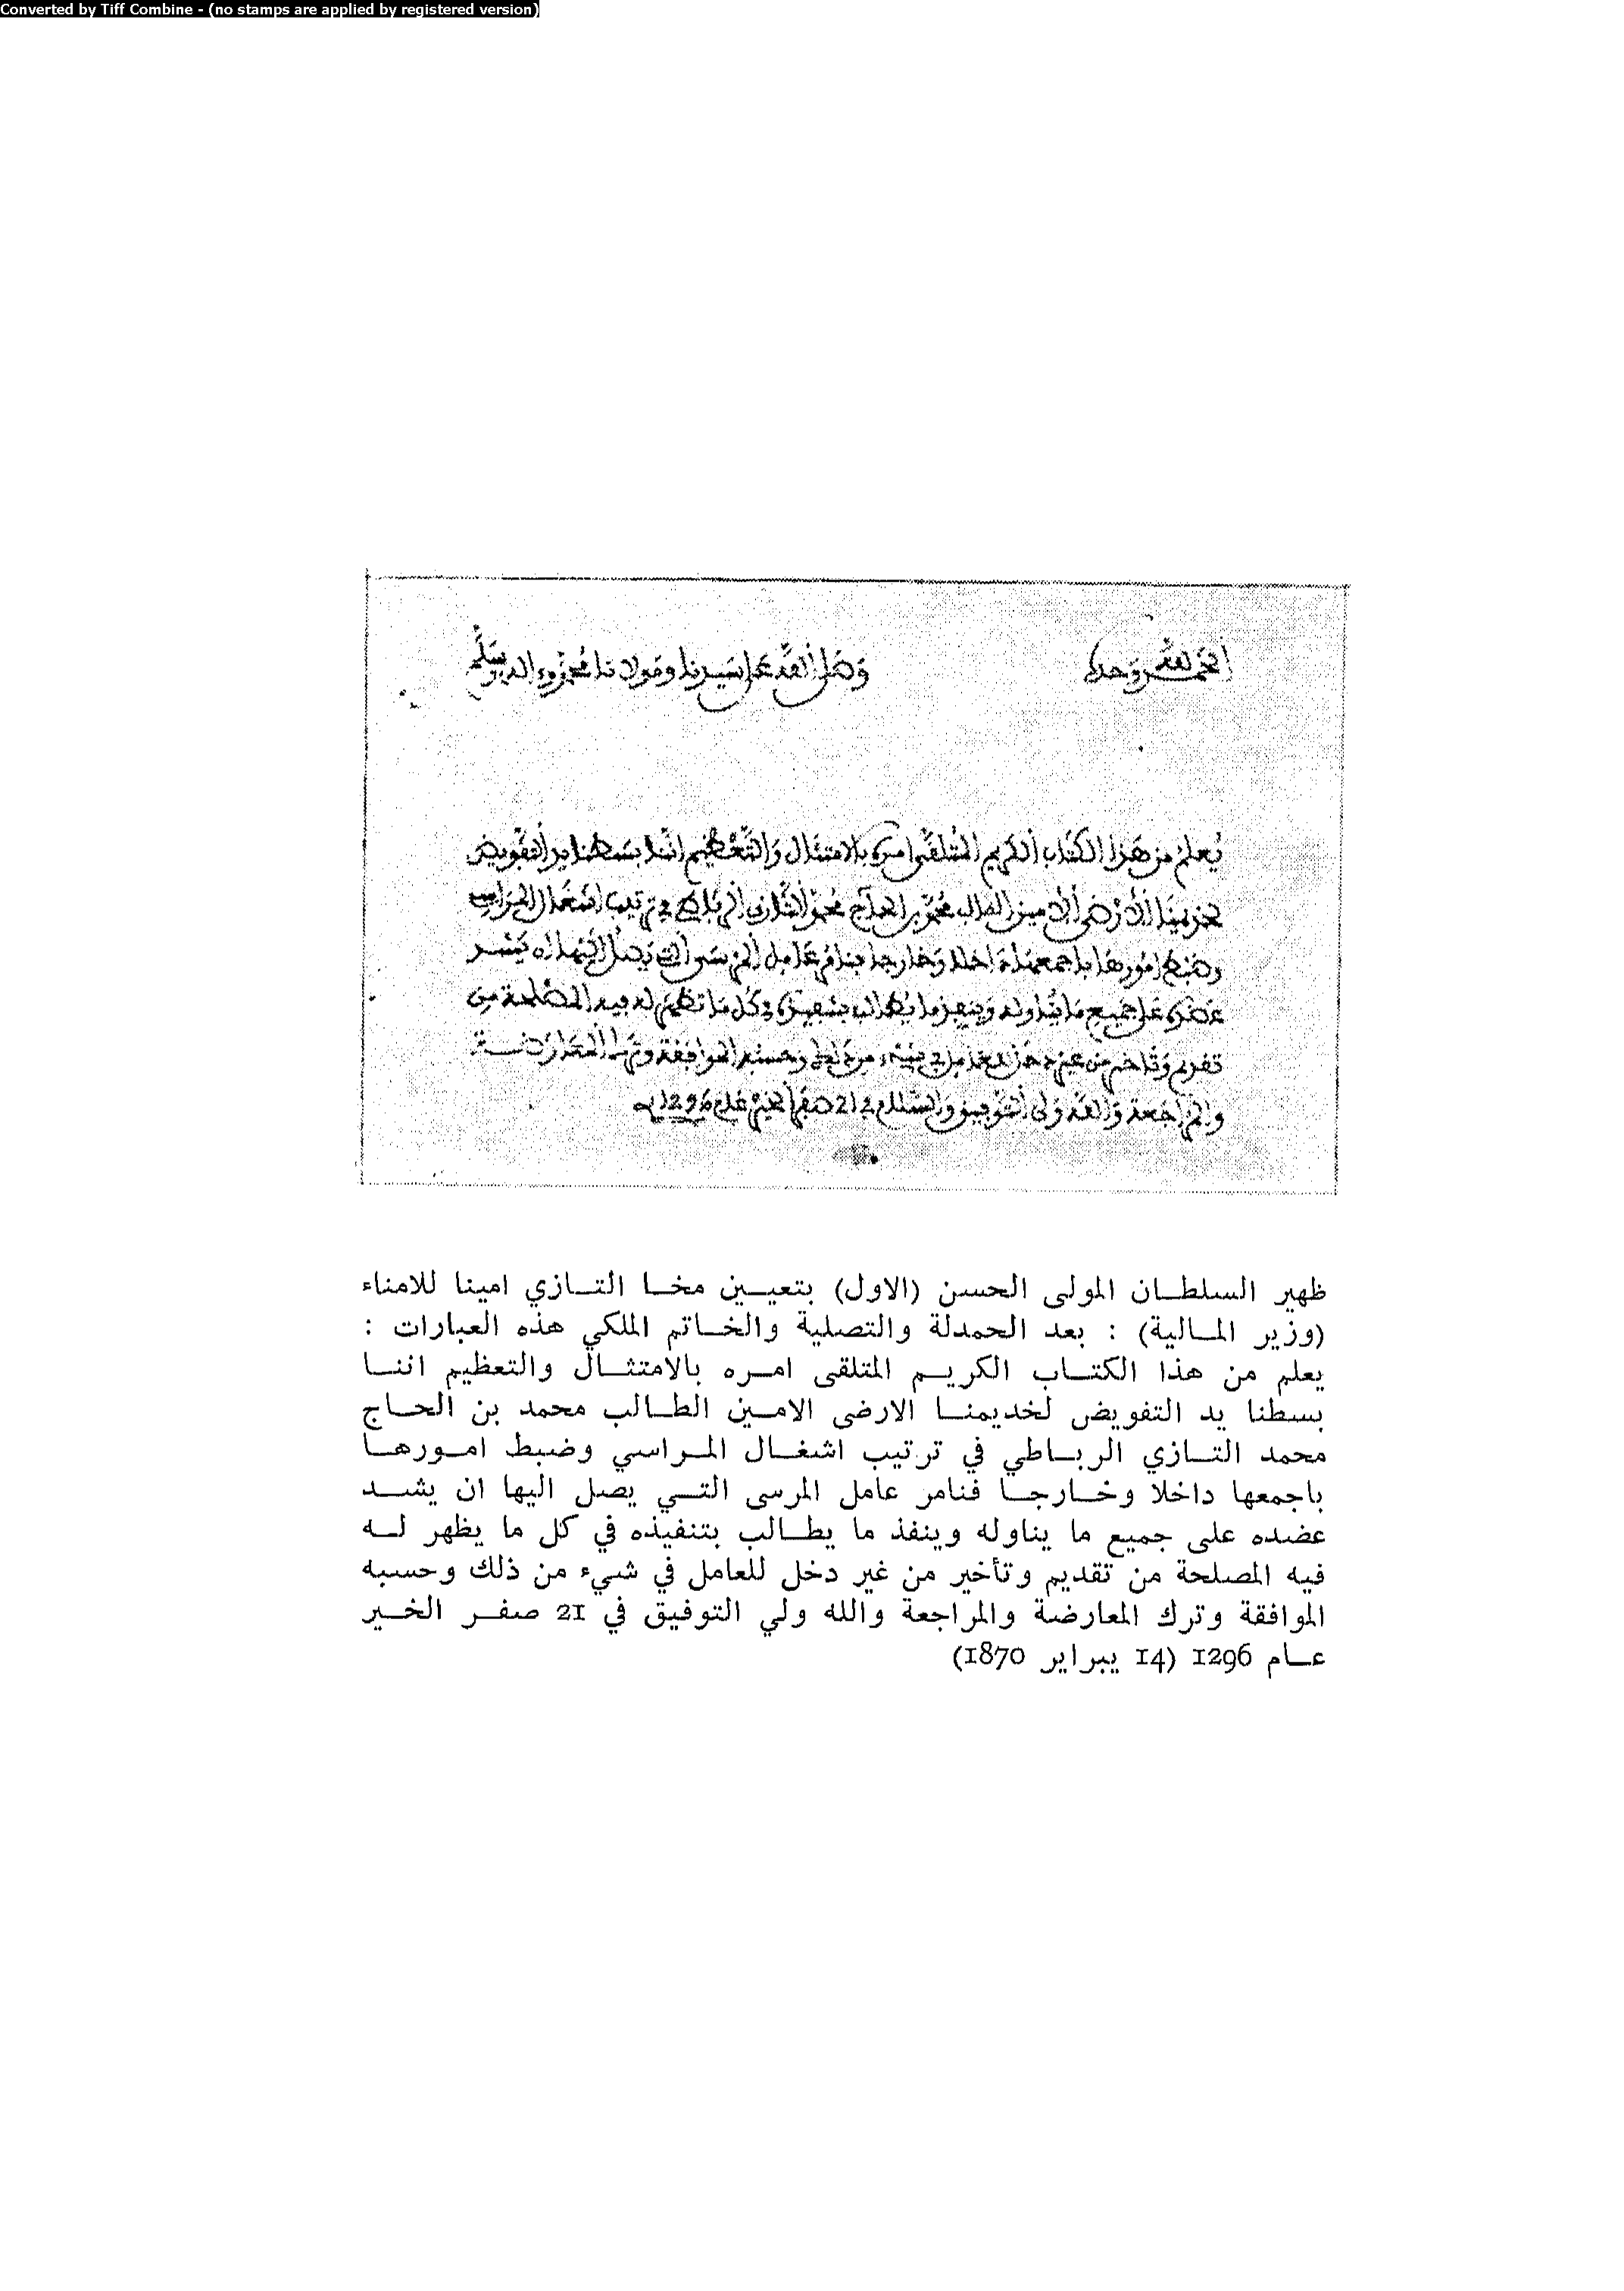 Converted by Tiff Combine - (no stamps are applied by registered version)
الحمد لله وحده
وصلى الله على سيدنا ومولانا محمد وءاله وسلم
يعلم من هذا الكتاب الكريم المتلقى امره بالامتثال والتعظيم اننا بسطنا يد التفويض
لخديمنا الارضى الامين الطالب محمد بن الحاج محمد التازي الرباطي في ترتيب اشغال المراسي
وضبط امورها باجمعها داخلا وخارجا فنامر عامل المرسى التي يصل اليها ان يشد
عضده على جميع ما يناوله وينفذ ما يطالب بتنفيذه في كل ما يظهر له فيه المصلحة من
تقديم وتاخير من غير دخل للعامل في شيء من ذلك وحسبه الموافقة وترك المعارضة
والمراجعة والله ولي التوفيق والسلام في 21 صفر الخير عام 1296
ظهير السلطان المولى الحسن (الاول) بتعيين مخا التازي امينا للامناء
(وزير المالية) : بعد الحمدلة والتصلية والخاتم الملكي هذه العبارات :
يعلم من هذا الكتاب الكريم المتلقى امره بالامتثال والتعظيم اننا
بسطنا يد التفويض لخديمنا الارضى الامين الطالب محمد بن الحاج
محمد التازي الرباطي في ترتيب اشغال المراسي وضبط امورها
باجمعها داخلا وخارجا فنامر عامل المرسى التي يصل اليها ان يشد
عضده على جميع ما يناوله وينفذ ما يطالب بتنفيذه في كل ما يظهر له
فيه المصلحة من تقديم وتأخير من غير دخل للعامل في شيء من ذلك وحسبه
الموافقة وترك المعارضة والمراجعة والله ولي التوفيق في 21 صفر الخير
عام 1296 (14 يبراير 1870)